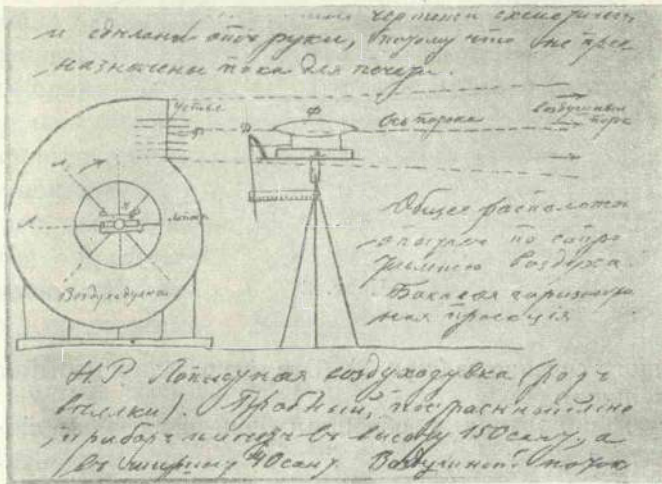 чертежи схематичны
и сделаны от руки, потому что не пред
назначены пока для печати.
Устье
Ось потока
Воздушный
поток
Ф
Л
Лопать
Воздуходувка
Общее расположен
по сопро
воздуха.
Боковая горизонталь
ная проекция
Н.Р. Лопастная воздуходувка (родъ
веялки). Пробный, построенный мною
приборъ имеетъ въ высоту 150 сант., а
въ ширину 40 сант. Воздушный поток